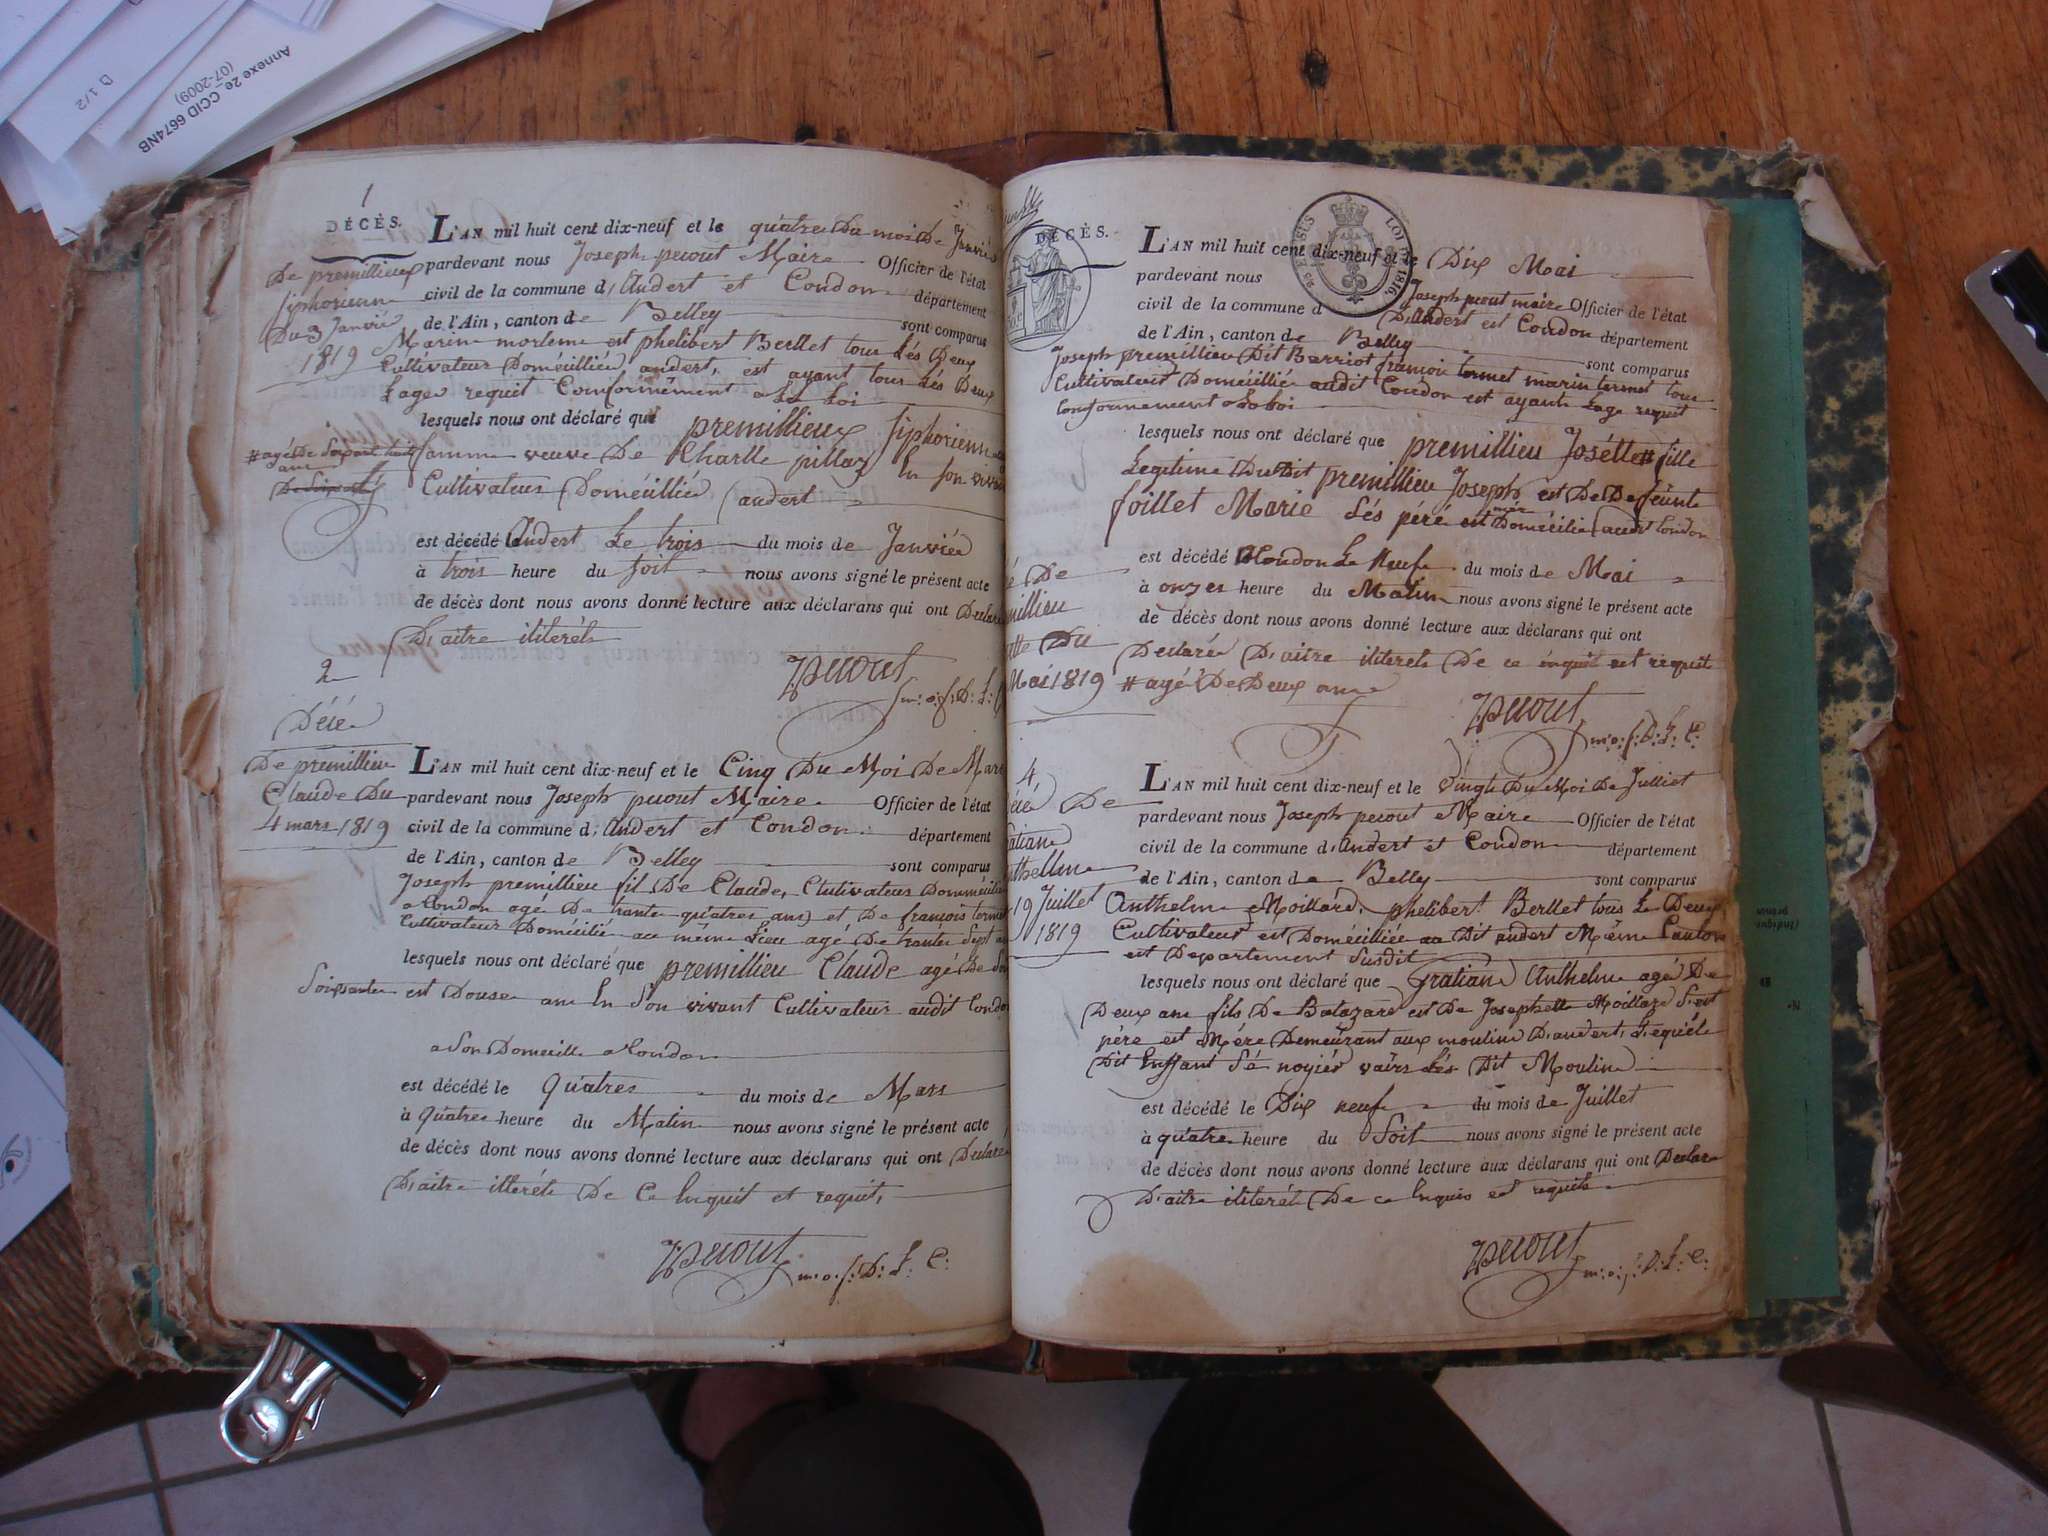 Annexe 2e_CCID 6674NB
(07-2009)
1/2
1
DÉCÈS.
De premillieux
siphorienne
Du 3 Janvié
1819
L'AN mil huit cent dix-neuf et le quatre Du mois De Janvié
pardevant nous Joseph peuout Maire Officier de l'état
civil de la commune d'Andert et Condon département
de l'Ain, canton de Belley sont comparus
Marin mortem est phelibert Berllet tous Lés Deux
Cultivateur Doméillié andert, est ayant tous Lés Deux
Lage requit Conformément a La Loi
lesquels nous ont déclaré que premillieux siphorienne
# agéDe Soixante huit
ans
famme veuve De Charlle pillaz En son vivan
Cultivateur Doméillié andert
est décédé andert Le trois du mois de Janvié
à trois heure du soit nous avons signé le présent acte
de décès dont nous avons donné lecture aux déclarans qui ont Declaré
D'aitre iliterét
Jpeuout
m: o: f: D: L:
2
Décé
De premillieu
Claude Du
4 mars 1819
L'AN mil huit cent dix-neuf et le Cinq Du Moi De Mars
pardevant nous Joseph peuout Maire Officier de l'état
civil de la commune d'Andert et Condon département
de l'Ain, canton de Belley sont comparus
Joseph premillieu fil De Claude, Clutivateur Domméillié
a Condon agé De trante quatres ans et De françois termet
Cultivateur Doméilié au même Lieu agé De trante Sept an
lesquels nous ont déclaré que premillieu Claude agé De
Soixante est Douse ans En Son vivant Cultivateur audit Condon
a Son Domeille a Condon
est décédé le Quatres du mois de Mars
à Quatre heure du Matin nous avons signé le présent acte
de décès dont nous avons donné lecture aux déclarans qui ont Déclaré
D'aitre illerét De Ce Enquit et requit,
Jpeuout m: o: f: D: L: C:
DÉCÈS.
LOI 1816.
L'AN mil huit cent dix-neuf et le Dix Mai
pardevant nous Joseph peuout maire Officier de l'état
civil de la commune d'Andert est Condon département
de l'Ain, canton de Belley sont comparus
Joseph premillieu Dit Barriot framoi termet marin termet tous
Cultivateur Doméillié audit Condon est ayant Lage requit
Conformement a La Loi
lesquels nous ont déclaré que premillieu Joséllte # fille
Legitime DuDit premillieu Joseph est De Defeunte
foillet Marie Lés péré est mér Doméillié audit Condon
est décédé a Condon Le Neuf du mois de Mai
à onzes heure du Matin nous avons signé le présent acte
de décès dont nous avons donné lecture aux déclarans qui ont
Declaré D'aitre iliteret De ce inquit est requit
é De
millieu
tte Du
Mai 1819
# agé De Deux ans
Jpeuout
m: o: f: D: L: C:
4
écé De
atiane
thellme
19 Juillet
1819
L'AN mil huit cent dix-neuf et le Vingt Du Moi De Julliet
pardevant nous Joseph peuout Maire Officier de l'état
civil de la commune d'Andert et Condon département
de l'Ain, canton de Belley sont comparus
Anthelme Moillard, phelibert Berllet tous Le Deux
Cultivateur est Doméillié au Dit andert Même Canton
est Departement Susdit
lesquels nous ont déclaré que Gratiane Anthelme agé De
Deux ans fils De Batazard est De Josephett Moillard Sest
pére est Mére Demeurant aux moulin D'andert, Lequéle
Dit Enffant Sé noyier vairs Lés Dit Moulin
est décédé le Dix neuf du mois de Juillet
à quatre heure du Soit nous avons signé le présent acte
de décès dont nous avons donné lecture aux déclarans qui ont Declare
D'aitre iliterét De ce Enquis est requit
Jpeuout m: o: f: D: L: C: